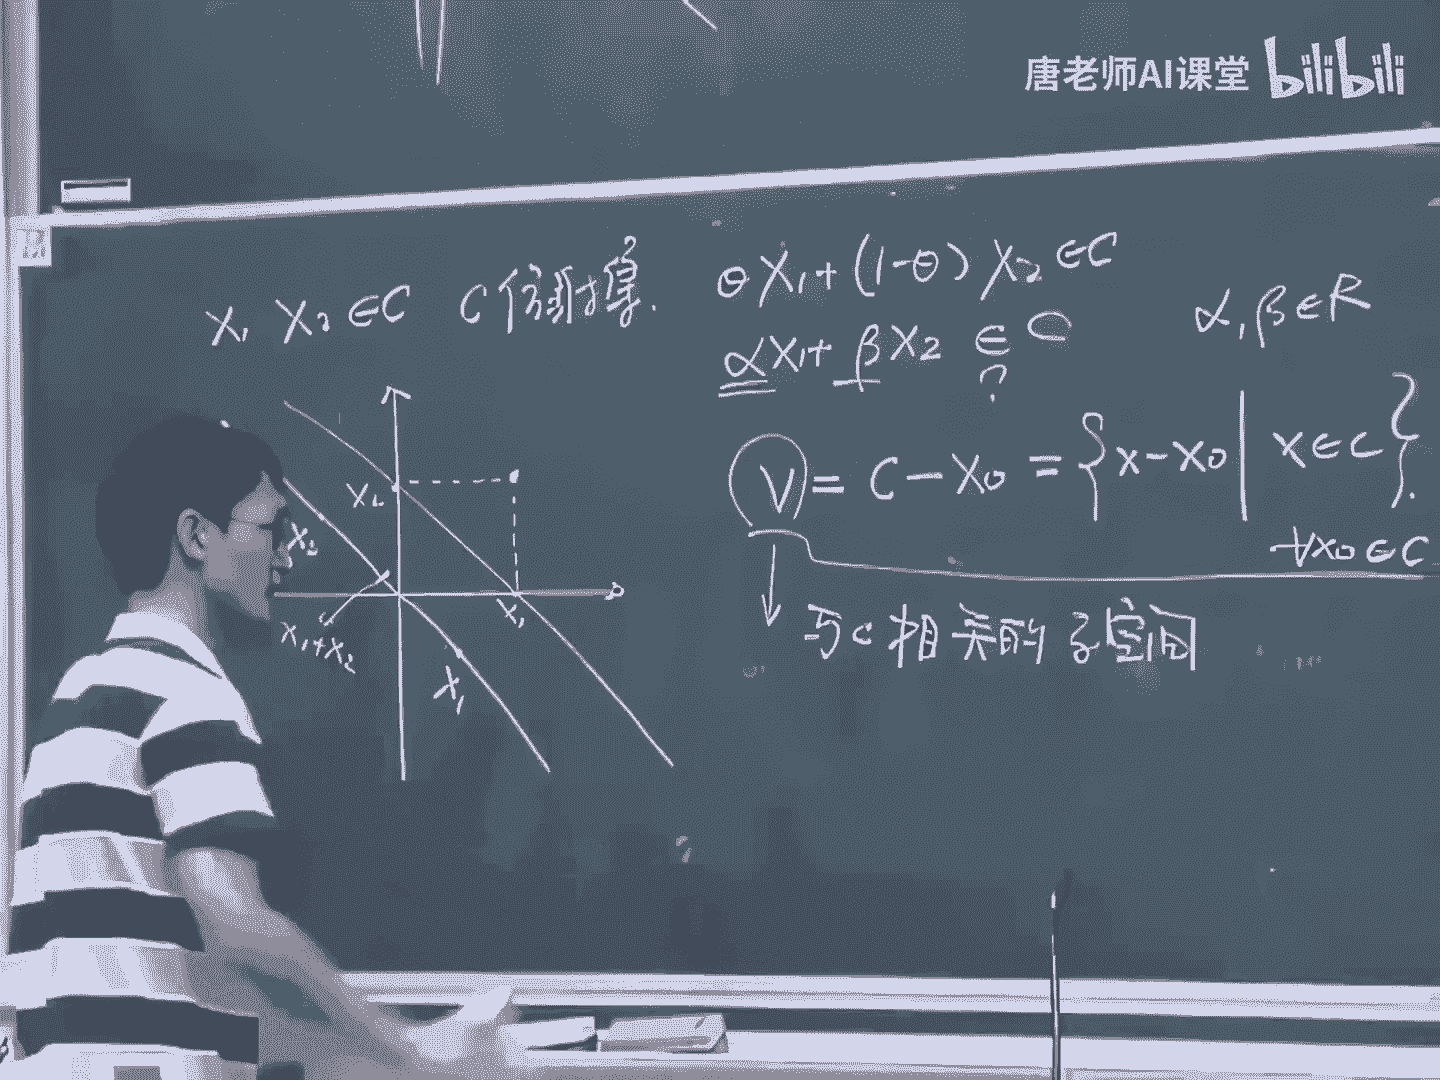 唐老师AI课堂 bilibili
x₁ x₂ ∈C C仿射集. θx₁+(1-θ)x₂ ∈C
αx₁+βx₂ ∈ C α,β∈R
?
V = C-x₀ = {x-x₀ | x∈C}.
∀x₀∈C
与C相关的子空间
x₂
x₂
x₁
x₁+x₂
x₁